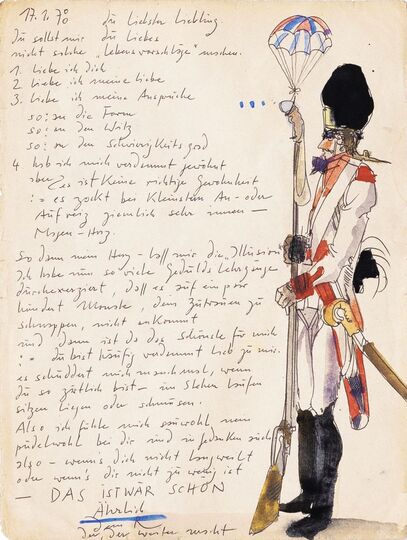 17.1.70 du Liebster Liebling.
du sollst mir du Liebes
nicht solche „Lebensvorschläge" machen.
1. Liebe ich Dich
2. Liebe ich meine Liebe
3. Liebe ich meine Ansprüche
so: an die Form
so: an den Witz
so: an den Schwierigkeitsgrad
4 hab ich mich verdammt gewöhnt
aber es ist keine richtige Gewohnheit
es zockt bei kleinsten An- oder
Aufreiz ziemlich sehr
Magen-Herz.
So dann mein Herz - laß mir die „Illusion
Ich habe nun so viele Gedulds Lehrgänge
durchexerziert, daß es auf ein paar
hundert Monate, dem Zutrauen zu
nicht ankommt
und dann ist da das Schönste für mich
du bist häufig verdammt lieb zu mir.
es schüddert mich manchmal, wenn
du so zärtlich bist - im Stehen laufen
sitzen liegen oder schmusen.
Also ich fühle mich sauwohl
pudelwohl bei dir und in Gedanken auch
also - wenn's dich nicht langweilt
oder wenn's dir nicht zu wenig ist
- DAS IST WÄR SCHÖN
Ährlich
dein
der, der weiter